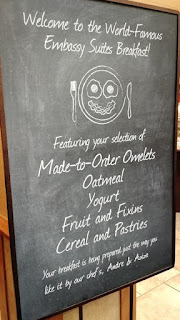 Welcome to the World-Famous
Embassy Suites Breakfast!
Featuring your selection of
Made-to-Order Omelets
Oatmeal
Yogurt
Fruit and Fixins
Cereal and Pastries
Your breakfast is being prepared just the way you
like it by our chef's, Andre & Azize